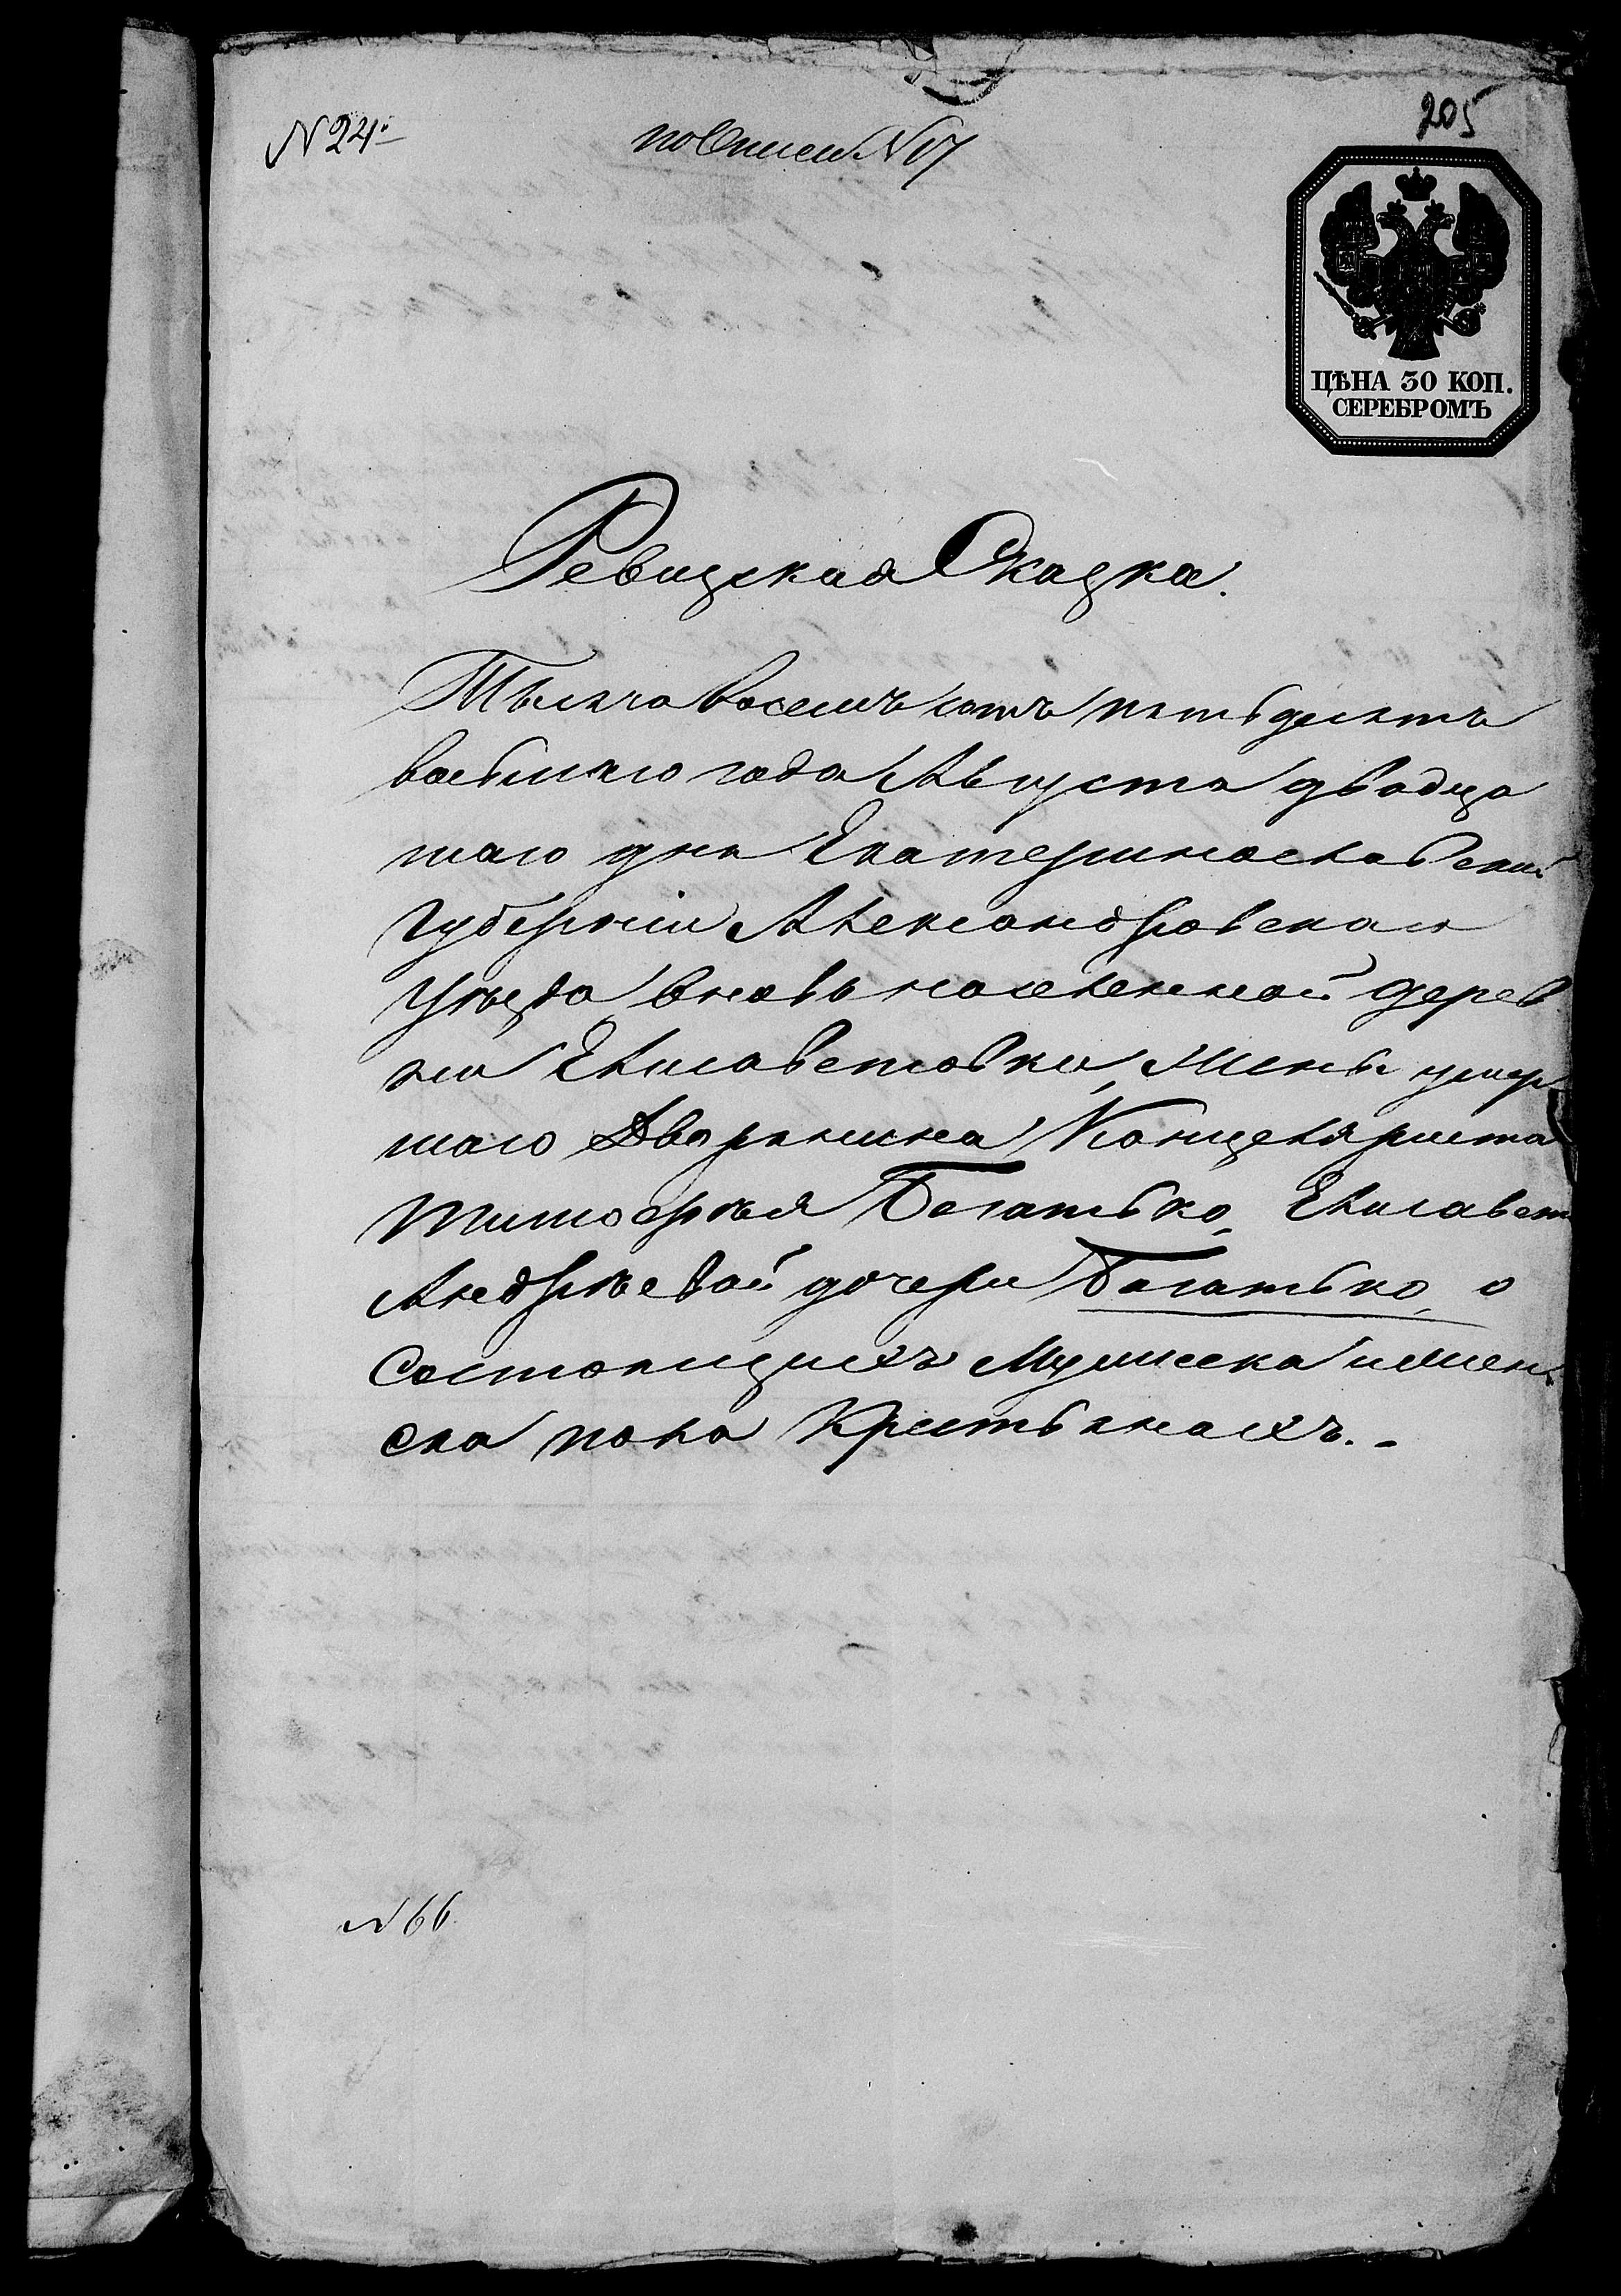 N 24.
по Описи N 17
205
ЦѢНА 30 КОП.
СЕРЕБРОМЪ
Ревизская Сказка.
Тысяча восемъ сотъ пятьдесятъ
восьмаго года Августа двадца
таго дня Екатеринославской
Губерніи Александровскаго
Уѣзда вновь населенной дерев
ни Елисаветовки, Жены умер
шаго Дворянина Канцеляриста
Тимофѣя Богатько, Елисавет
Андрѣевой дочери Богатько, о
Состоящихъ Мужеска и жен
ска пола Крестьянахъ.
N 66.